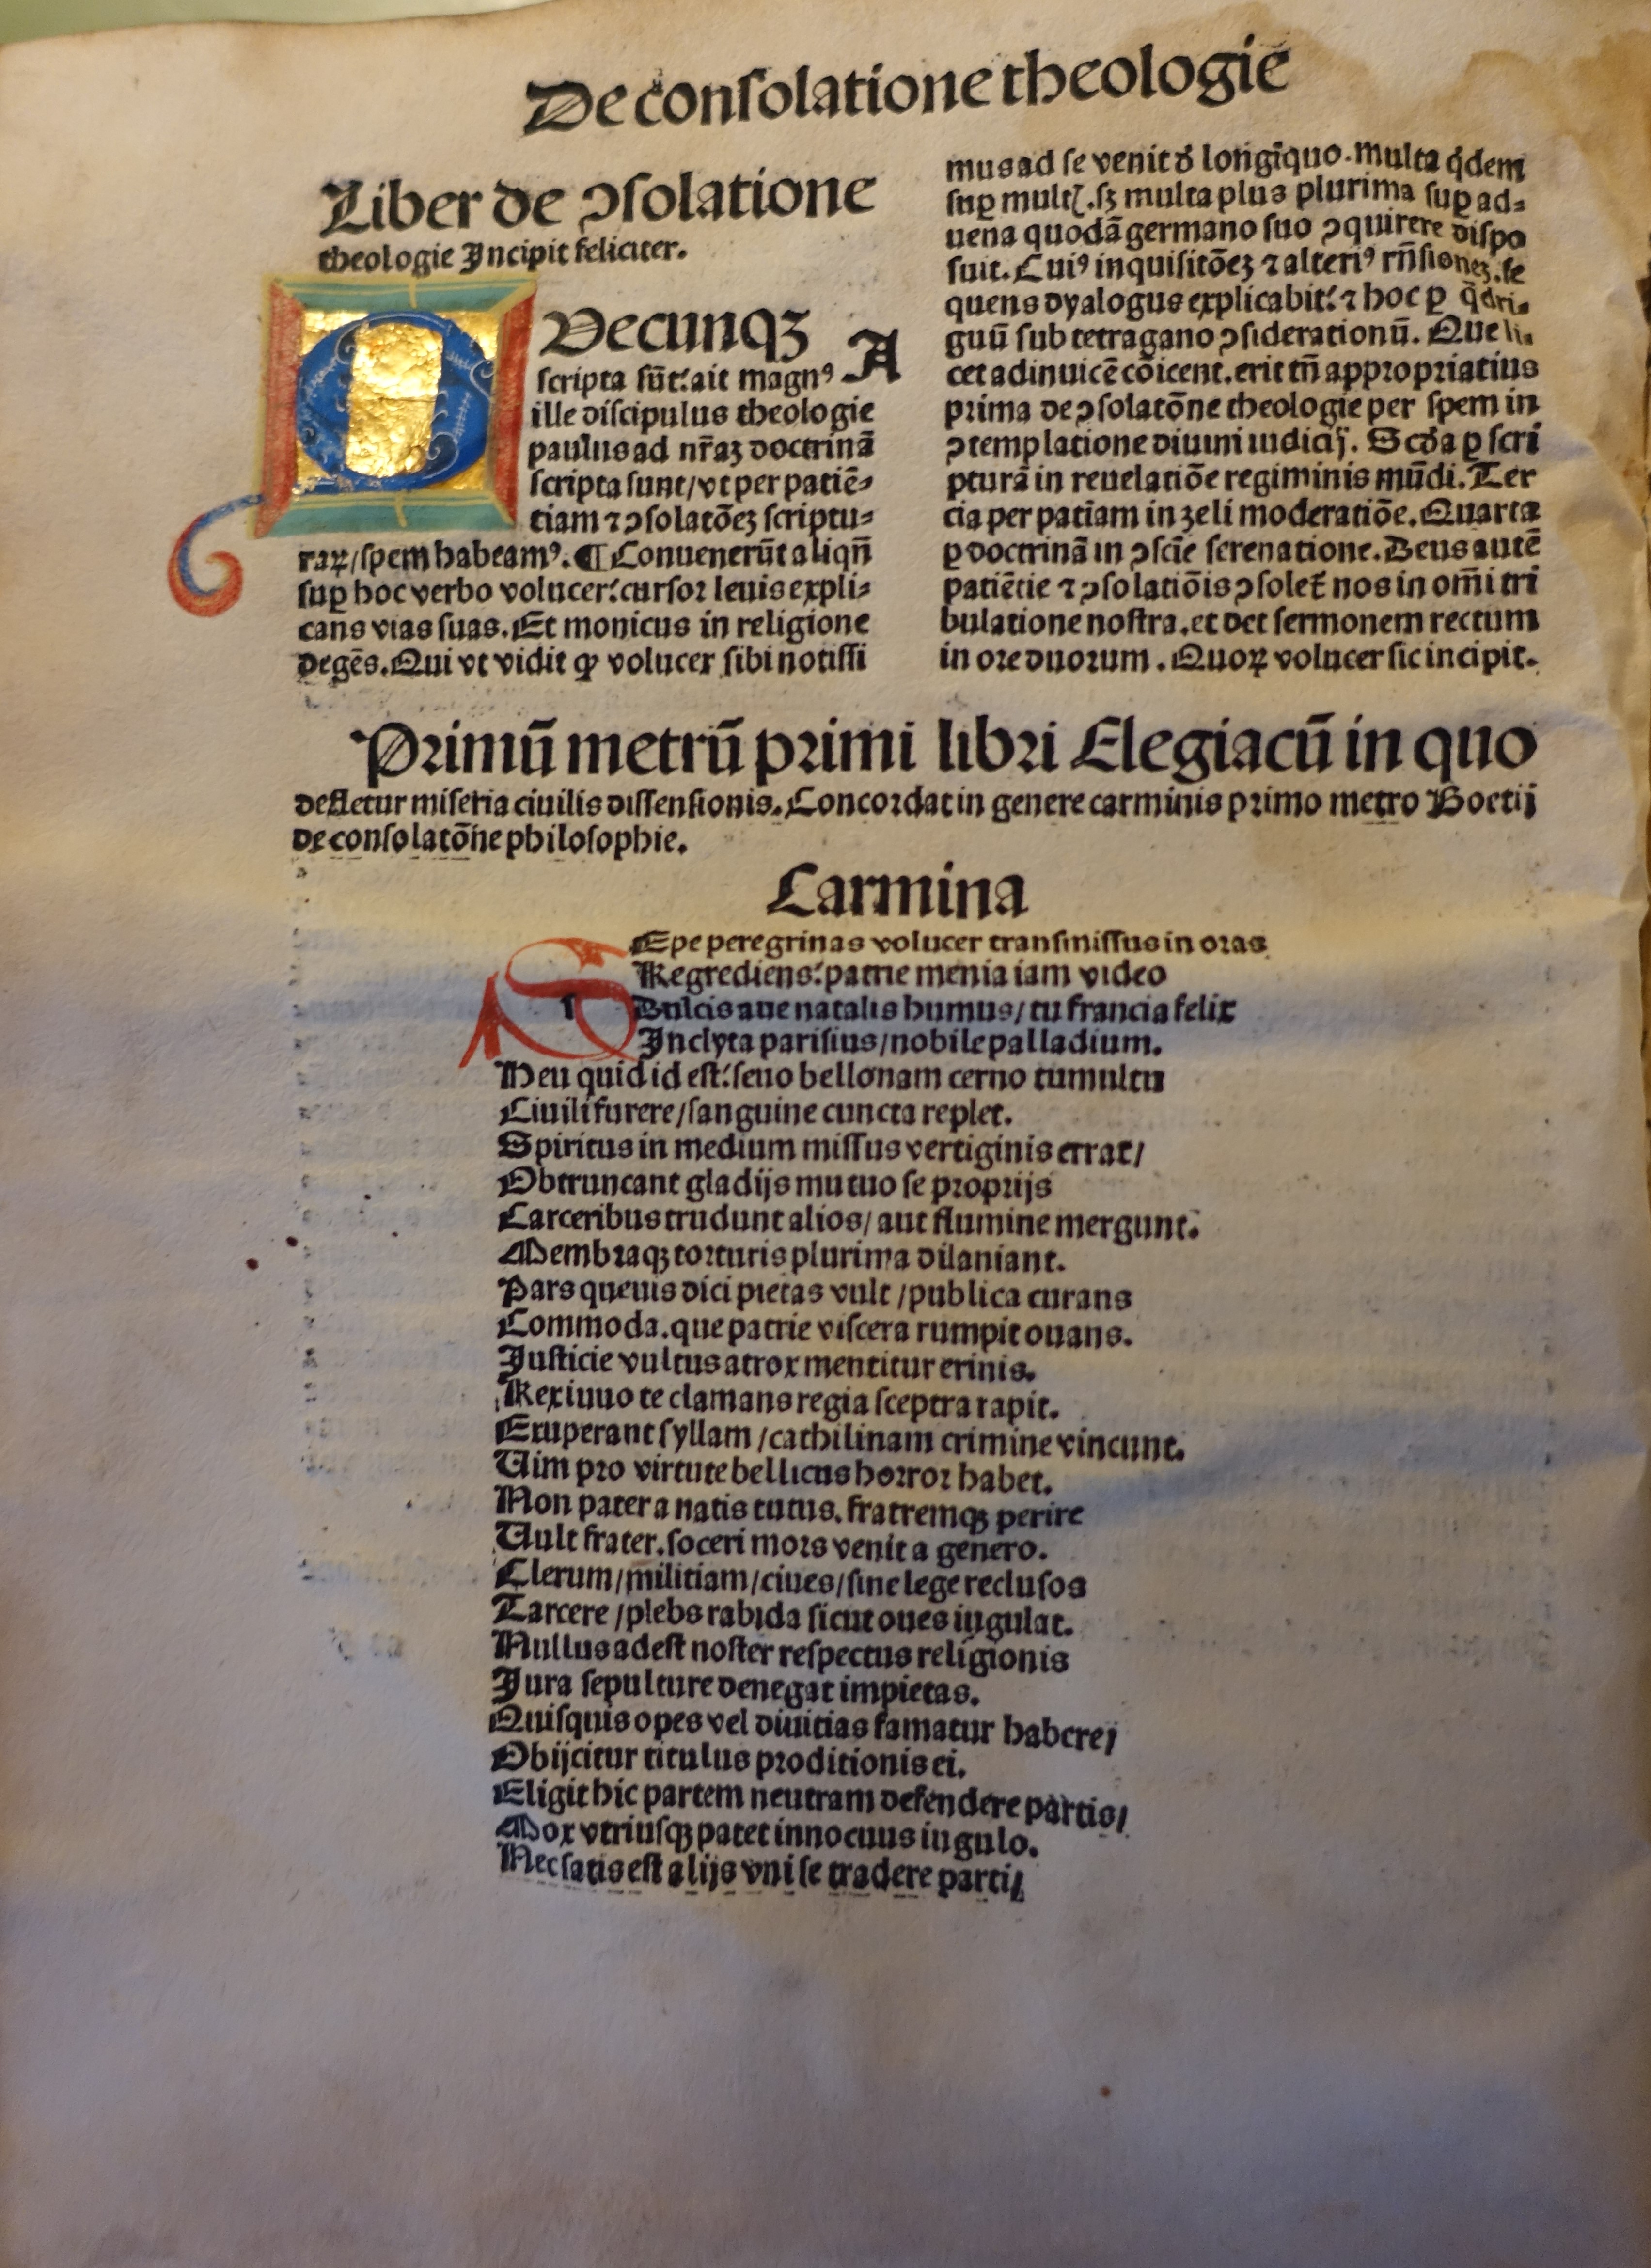 De conſolatione theologie
Liber de ꝯſolatione
theologie Incipit feliciter.
QVecunqꝫ
A
ſcripta sūt: ait magnꝰ
ille diſcipulus theologie
paulus ad nr̄aꝫ doctrinā
ſcripta ſunt/vt per patiē⸗
tiam ⁊ ꝯſolatōeꝫ ſcriptu⸗
raꝝ/ſpem habeamꝰ. ¶ Conuenerūt aliqn̄
ſuꝑ hoc verbo volucer: curſor leuis expli⸗
cans vias ſuas. Et monicus in religione
degēs. Qui vt vidit ꝙ volucer ſibi notiſſi
mus ad ſe venit đ longīquo. multa q̇dem
ſuꝑ mult̛. ſꝫ multa plus plurima ſuꝑ ad⸗
uena quodā germano ſuo ꝯquirere diſpo
ſuit. Cuiꝰ inquiſitōeꝫ ⁊ alteriꝰ rn̄ſioneꝫ. ſe
quens dyalogus explicabit: ⁊ hoc ꝑ q̈dri⸗
guū ſub tetragano ꝯſiderationū. Que li⸗
cet adinuicē cōicent. erit tn̄ appropriatius
prima de ꝯſolatōne theologie per ſpem in
ꝯtemplatione diuini iudicij. Scđa ꝑ ſcri
pturā in reuelatiōe regiminis mūdi. Ter
cia per patiam in zeli moderatiōe. Quarta
ꝑ doctrinā in ꝯſcīe ſerenatione. Deus autē
patiētie ⁊ ꝯſolatiōis ꝯſolet̄ nos in om̄i tri
bulatione noſtra. et det ſermonem rectum
in ore duorum. Quoꝝ volucer ſic incipit.
Primū metrū primi libri Elegiacū in quo
defletur miſeria ciuilis diſſenſionis. Concordat in genere carminis primo metro Boetij
de conſolatōne philoſophie.
Carmina
SEpe peregrinas volucer tranſmiſſus in oras
Regrediens: patrie menia iam video
Dulcis aue natalis humus/ tu francia felix
Inclyta pariſius/nobile palladium.
Heu quid id eſt: ſeuo bellonam cerno tumultu
Ciuili furere/ſanguine cuncta replet.
Spiritus in medium miſſus vertiginis errat/
Obtruncant gladijs mutuo ſe proprijs
Carceribus trudunt alios/ aut flumine mergunt.
Membraqꝫ torturis plurima dilaniant.
Pars queuis dici pietas vult /publica curans
Commoda. que patrie viſcera rumpit ouans.
Juſticie vultus atrox mentitur erinis.
Rex iuuo te clamans regia ſceptra rapit.
Exuperant ſyllam /cathilinam crimine vincunt.
Uim pro virtute bellicus horror habet.
Non pater a natis tutus. fratremqꝫ perire
Uult frater. ſoceri mors venit a genero.
Clerum/militiam/ciues/ſine lege recluſos
Tarcere /plebs rabida ſicut oues iugulat.
Nullus adeſt noſter reſpectus religionis
Jura ſepulture denegat impietas.
Quiſquis opes vel diuitias famatur habere/
Obijcitur titulus proditionis ei.
Eligit hic partem neutram defendere partis/
Mox vtriuſqꝫ patet innocuus iugulo.
Nec ſatis eſt alijs vni ſe tradere parti/